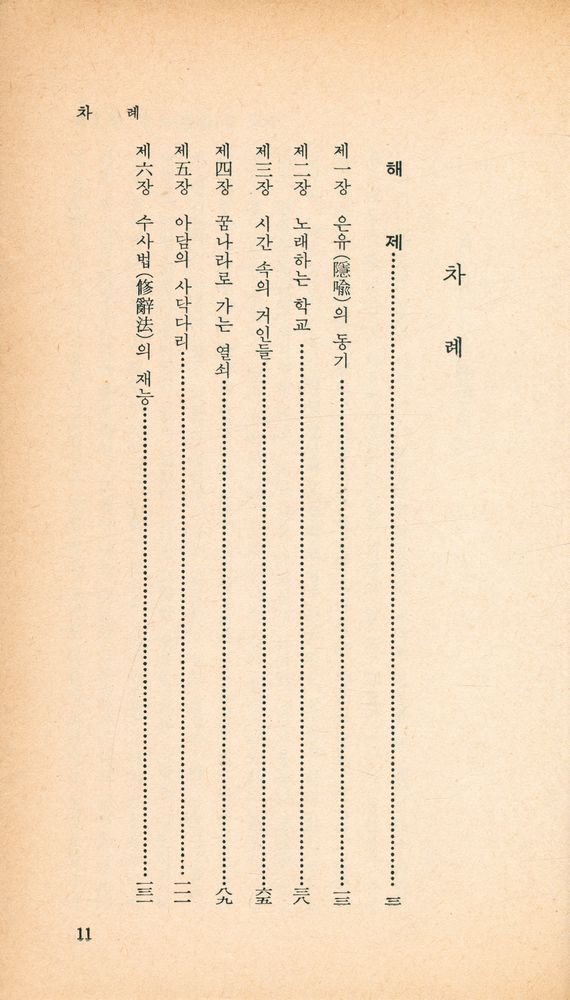 차 례
해 제 三
제一장 은유(隱喩)의 동기 一三
제二장 노래하는 학교 三八
제三장 시간 속의 거인들 六五
제四장 꿈나라로 가는 열쇠 八九
제五장 아담의 사닥다리 一一一
제六장 수사법(修辭法)의 재능 一三一
차 례
11